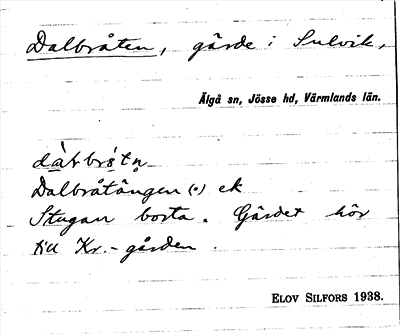 Dalbråten, gärde i Sulvik,
Älgå sn, Jösse hd, Värmlands län.
Dalbråtängen (•) ek
Stugan borta. Gärdet hör
till Kr.-gården.
ELOV SILFORS 1938.